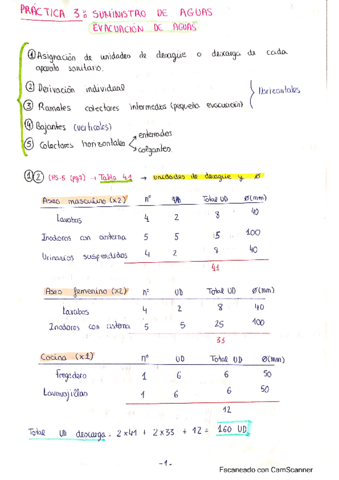 PRÁCTICA 3: SUMINISTRO DE AGUAS
EVACUACIÓN DE AGUAS
① Asignación de unidades de desague o descarga de cada
aparato sanitario.
② Derivación individual
③ Ramales colectores intermedios (pequeña evacuación)
horizontales
④ Bajantes (verticales)
⑤ Colectores horizontales
enterrados
colgantes.
①② (HS-5 (pg7) → Tabla 4.1 → unidades de desague y Ø
Aseo masculino (x2) nº UD Total UD Ø(mm)
Lavabos 4 2 8 40
Inodoros con cisterna 5 5 5 100
Urinarios suspendidos 4 2 8 40
41
Aseo femenino (x2) nº UD Total UD Ø(mm)
Lavabos 4 2 8 40
Inodoros con cisterna 5 5 25 100
33
Cocina (x1) nº UD Total UD Ø(mm)
Fregadero 1 6 6 50
Lavavajillas 1 6 6 50
12
Total UD descarga = 2x41 + 2x33 + 12 = 160 UD
-1-
Escaneado con CamScanner